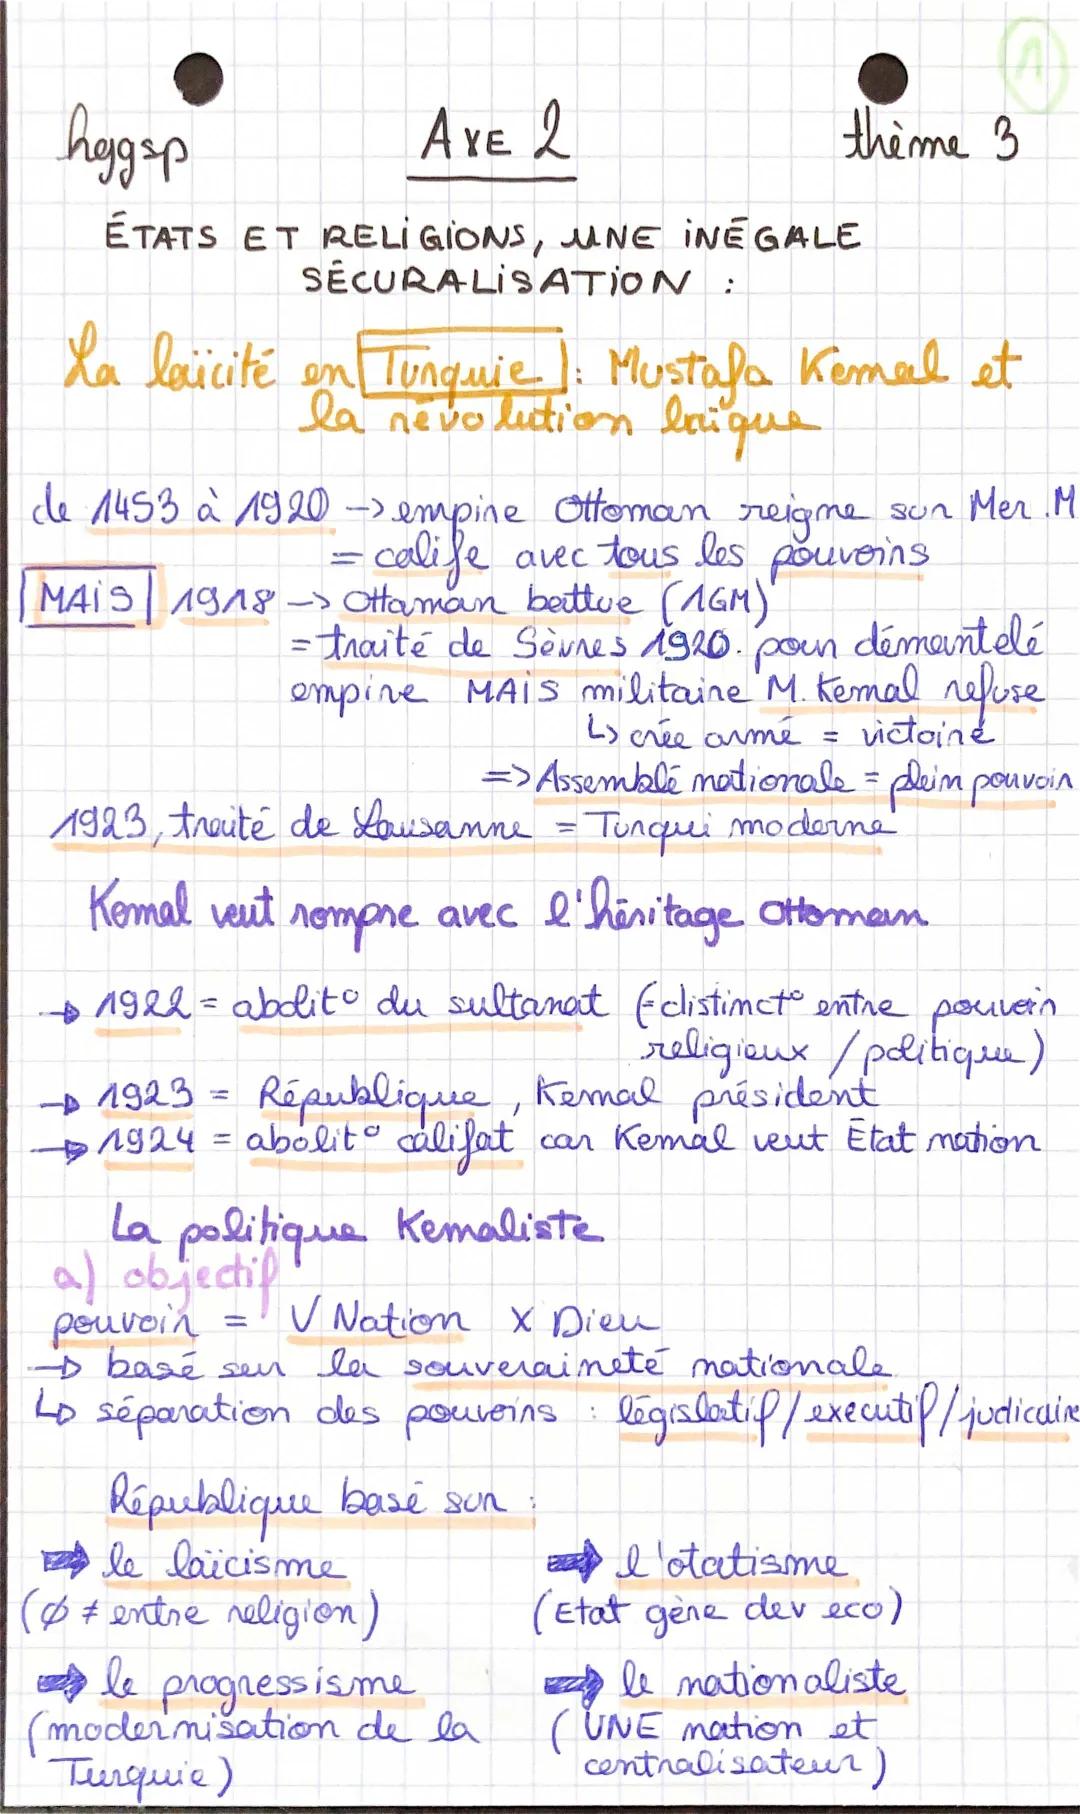 1
hggsp AXE 2 thème 3
ÉTATS ET RELIGIONS, UNE INÉGALE
SÉCURALISATION :
La laïcité en Turquie : Mustafa Kemal et
la révolution laïque
de 1453 à 1920 -> empire Ottoman reigne sur Mer.M
= calife avec tous les pouvoirs
MAIS 1918 -> Ottaman battue (1GM)
= traité de Sèvres 1920. pour démantelé
empire MAIS militaire M. Kemal refuse
↳ crée armé = victoire
=> Assemblé nationale = plein pouvoir
1923, traité de Lausanne = Turqui moderne
Kemal veut rompre avec l'héritage Ottoman
→ 1922 = abolit° du sultanat (= distinct° entre pouvoir
religieux / politique)
→ 1923 = République, Kemal président
→ 1924 = abolit° califat car Kemal veut État nation
La politique Kemaliste
a) objectif
pouvoir = V Nation X Dieu
→ basé sur la souveraineté nationale
↳ séparation des pouvoirs : législatif/executif/judicaire
République basé sur :
➡ le laïcisme ➡ l'otatisme
(Ø ≠ entre religion) (Etat gère dev eco)
➡ le progressisme ➡ le nationaliste
(modernisation de la (UNE nation et
Turquie) centralisateur)